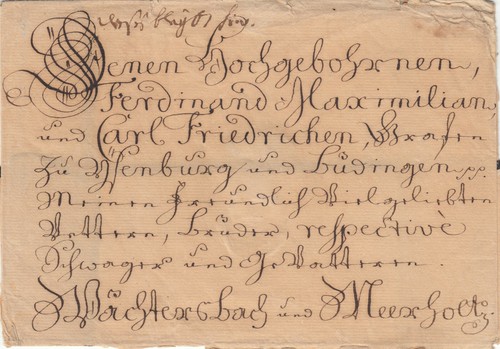 Denen Hochgebohrnen,
Ferdinand Maximilian,
und Carl Friedrichen, Grafen
zu Ysenburg und Büdingen pp.
Meinen freundlich Vielgeliebten
Vettern, Brüder, respectivè
Schwager und Gevatteren.
Wächtersbach und Meerholtz